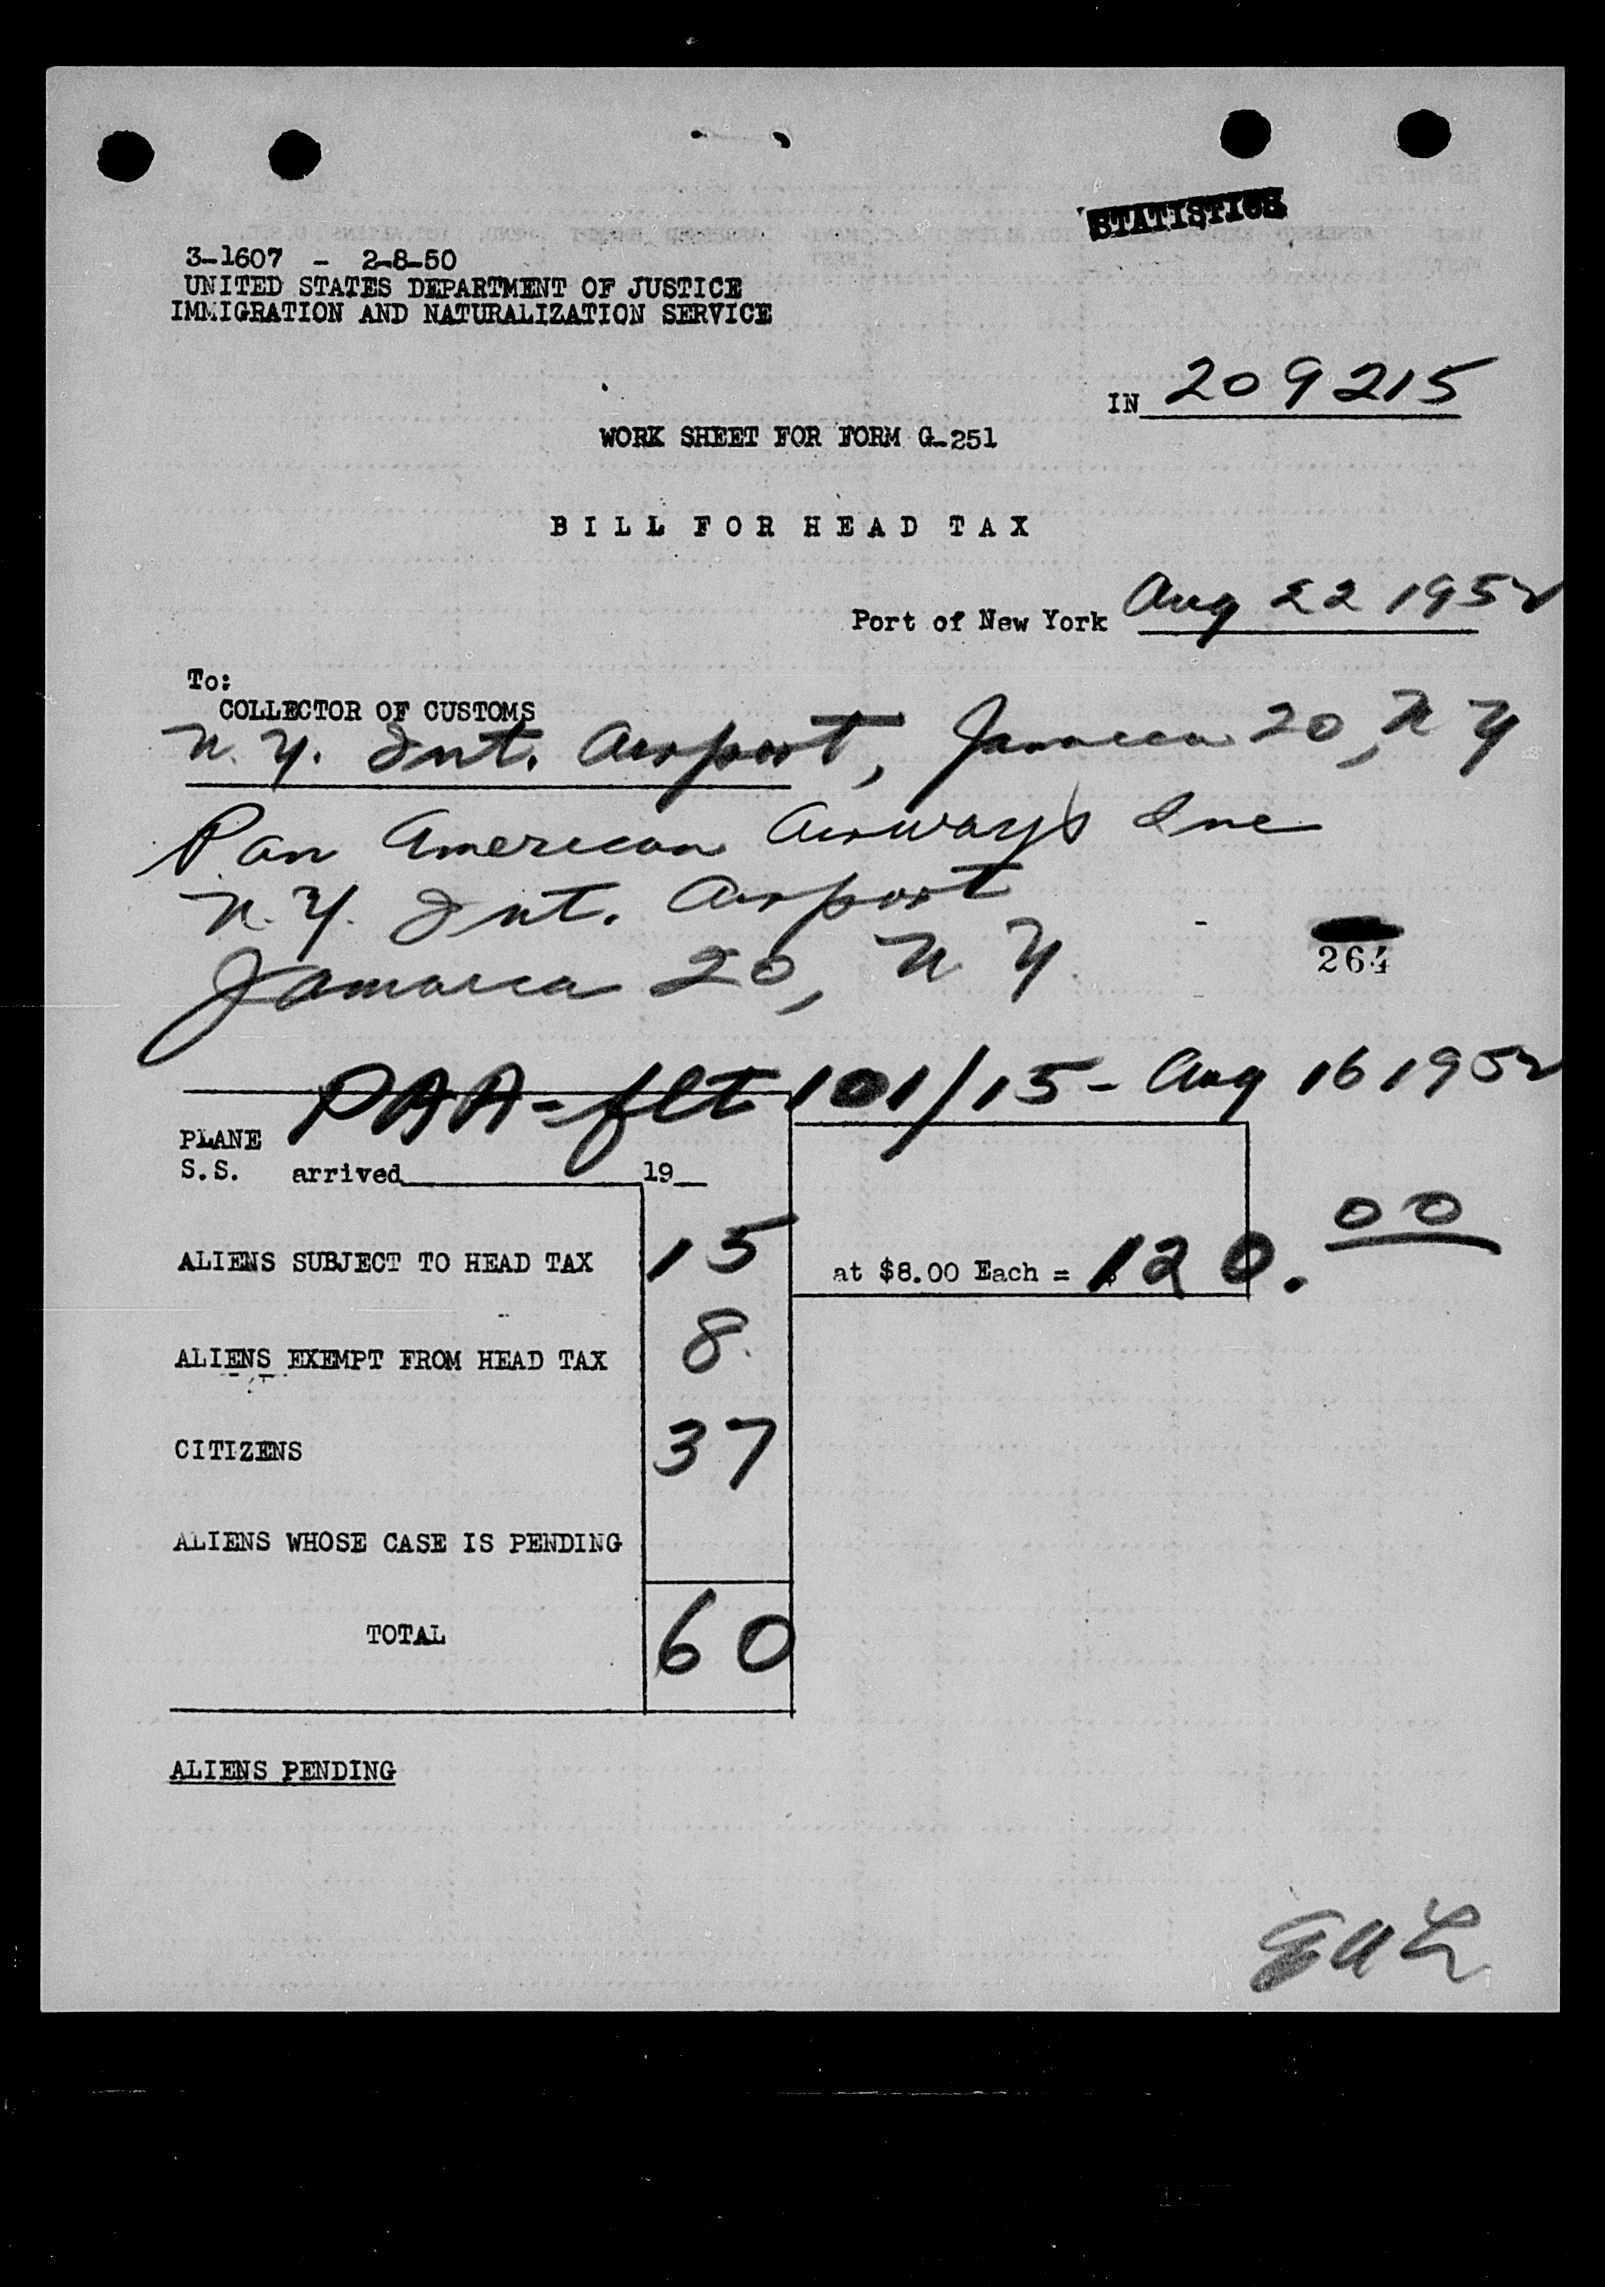 STATISTICS
3-1607 - 2-8-50
UNITED STATES DEPARTMENT OF JUSTICE
IMMIGRATION AND NATURALIZATION SERVICE
IN 209215
WORK SHEET FOR FORM G-251
BILL FOR HEAD TAX
Port of New York Aug 22 1952
To:
COLLECTOR OF CUSTOMS
N.Y. Int. Airport, Jamaica 20, N Y
Pan American Airways Inc
N.Y. Int. Airport
Jamaica 20, N Y.
264
PAA-flt 101/15 - Aug 16 1952
PLANE
S.S. arrived 19
ALIENS SUBJECT TO HEAD TAX 15 at $8.00 Each = $120.00
ALIENS EXEMPT FROM HEAD TAX 8
CITIZENS 37
ALIENS WHOSE CASE IS PENDING
TOTAL 60
ALIENS PENDING